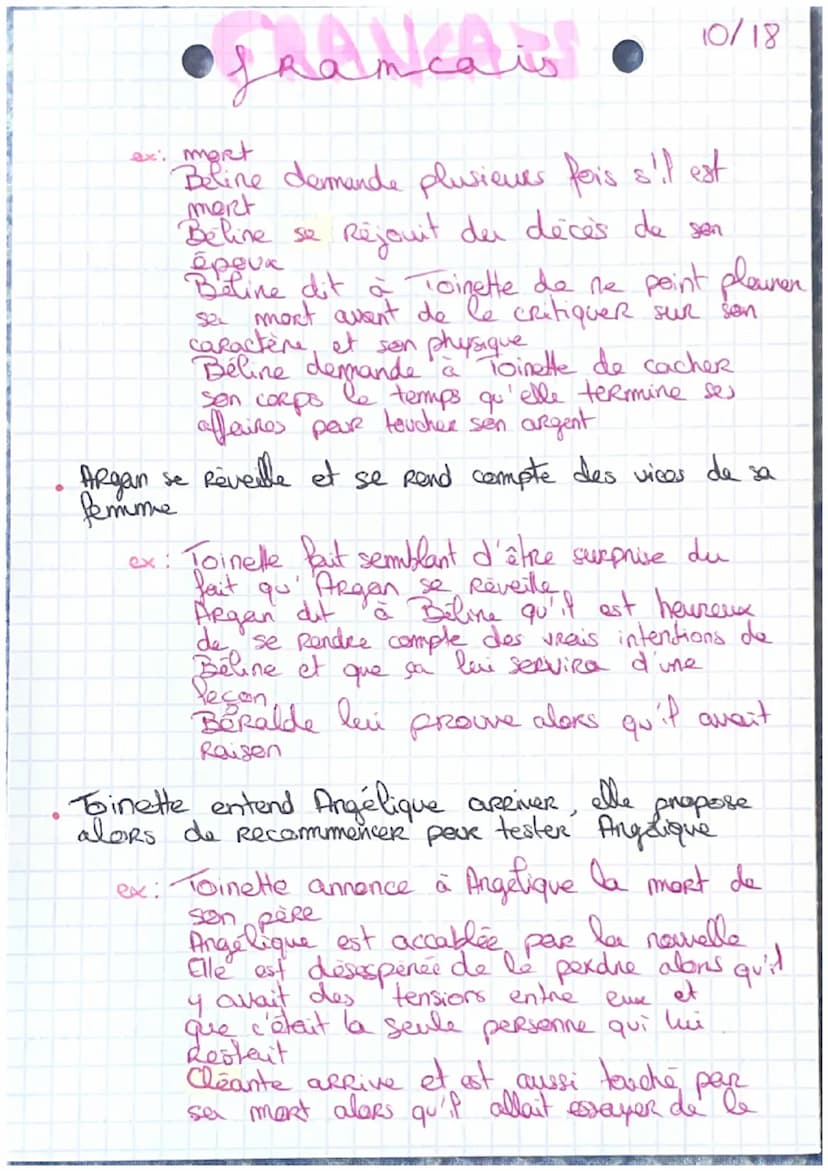 FRANCAIS
francais
10/18
ex: mort
Béline demande plusieurs fois s'il est
mort
Béline se réjouit du décès de son
époux
Béline dit à Toinette de ne point pleurer
sa mort avant de le critiquer sur son
caractère et son physique
Béline demande à Toinette de cacher
son corps le temps qu'elle termine ses
affaires pour toucher son argent
• Argan se réveille et se rend compte des vices de sa
femme
ex: Toinette fait semblant d'être surprise du
fait qu'Argan se réveille
Argan dit à Béline qu'il est heureux
de se rendre compte des vrais intentions de
Béline et que ça lui servira d'une
leçon
Béralde lui prouve alors qu'il avait
raison
• Toinette entend Angélique arriver, elle propose
alors de recommencer pour tester Angélique
ex: Toinette annonce à Angélique la mort de
son père
Angélique est accablée par la nouvelle
Elle est désespérée de le perdre alors qu'il
y avait des tensions entre eux et
que c'était la seule personne qui lui
restait
Cléante arrive et est aussi touché par
sa mort alors qu'il allait essayer de le